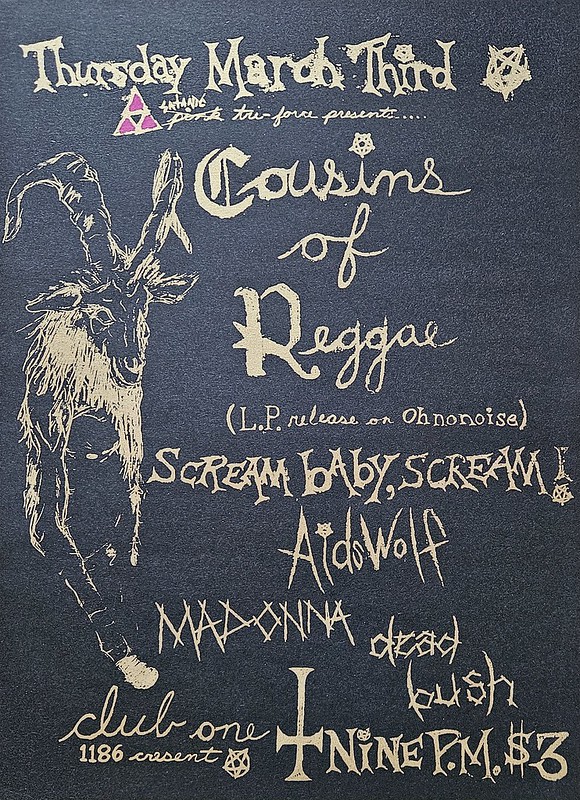 Thursday March Third
satanic
pink tri-force presents....
Cousins
of
Reggae
(L.P. release on Ohnonoise)
Scream baby, scream!
AidsWolf
MADONNA
dead
bush
club one
1186 cresent
NiNE P.M. $3